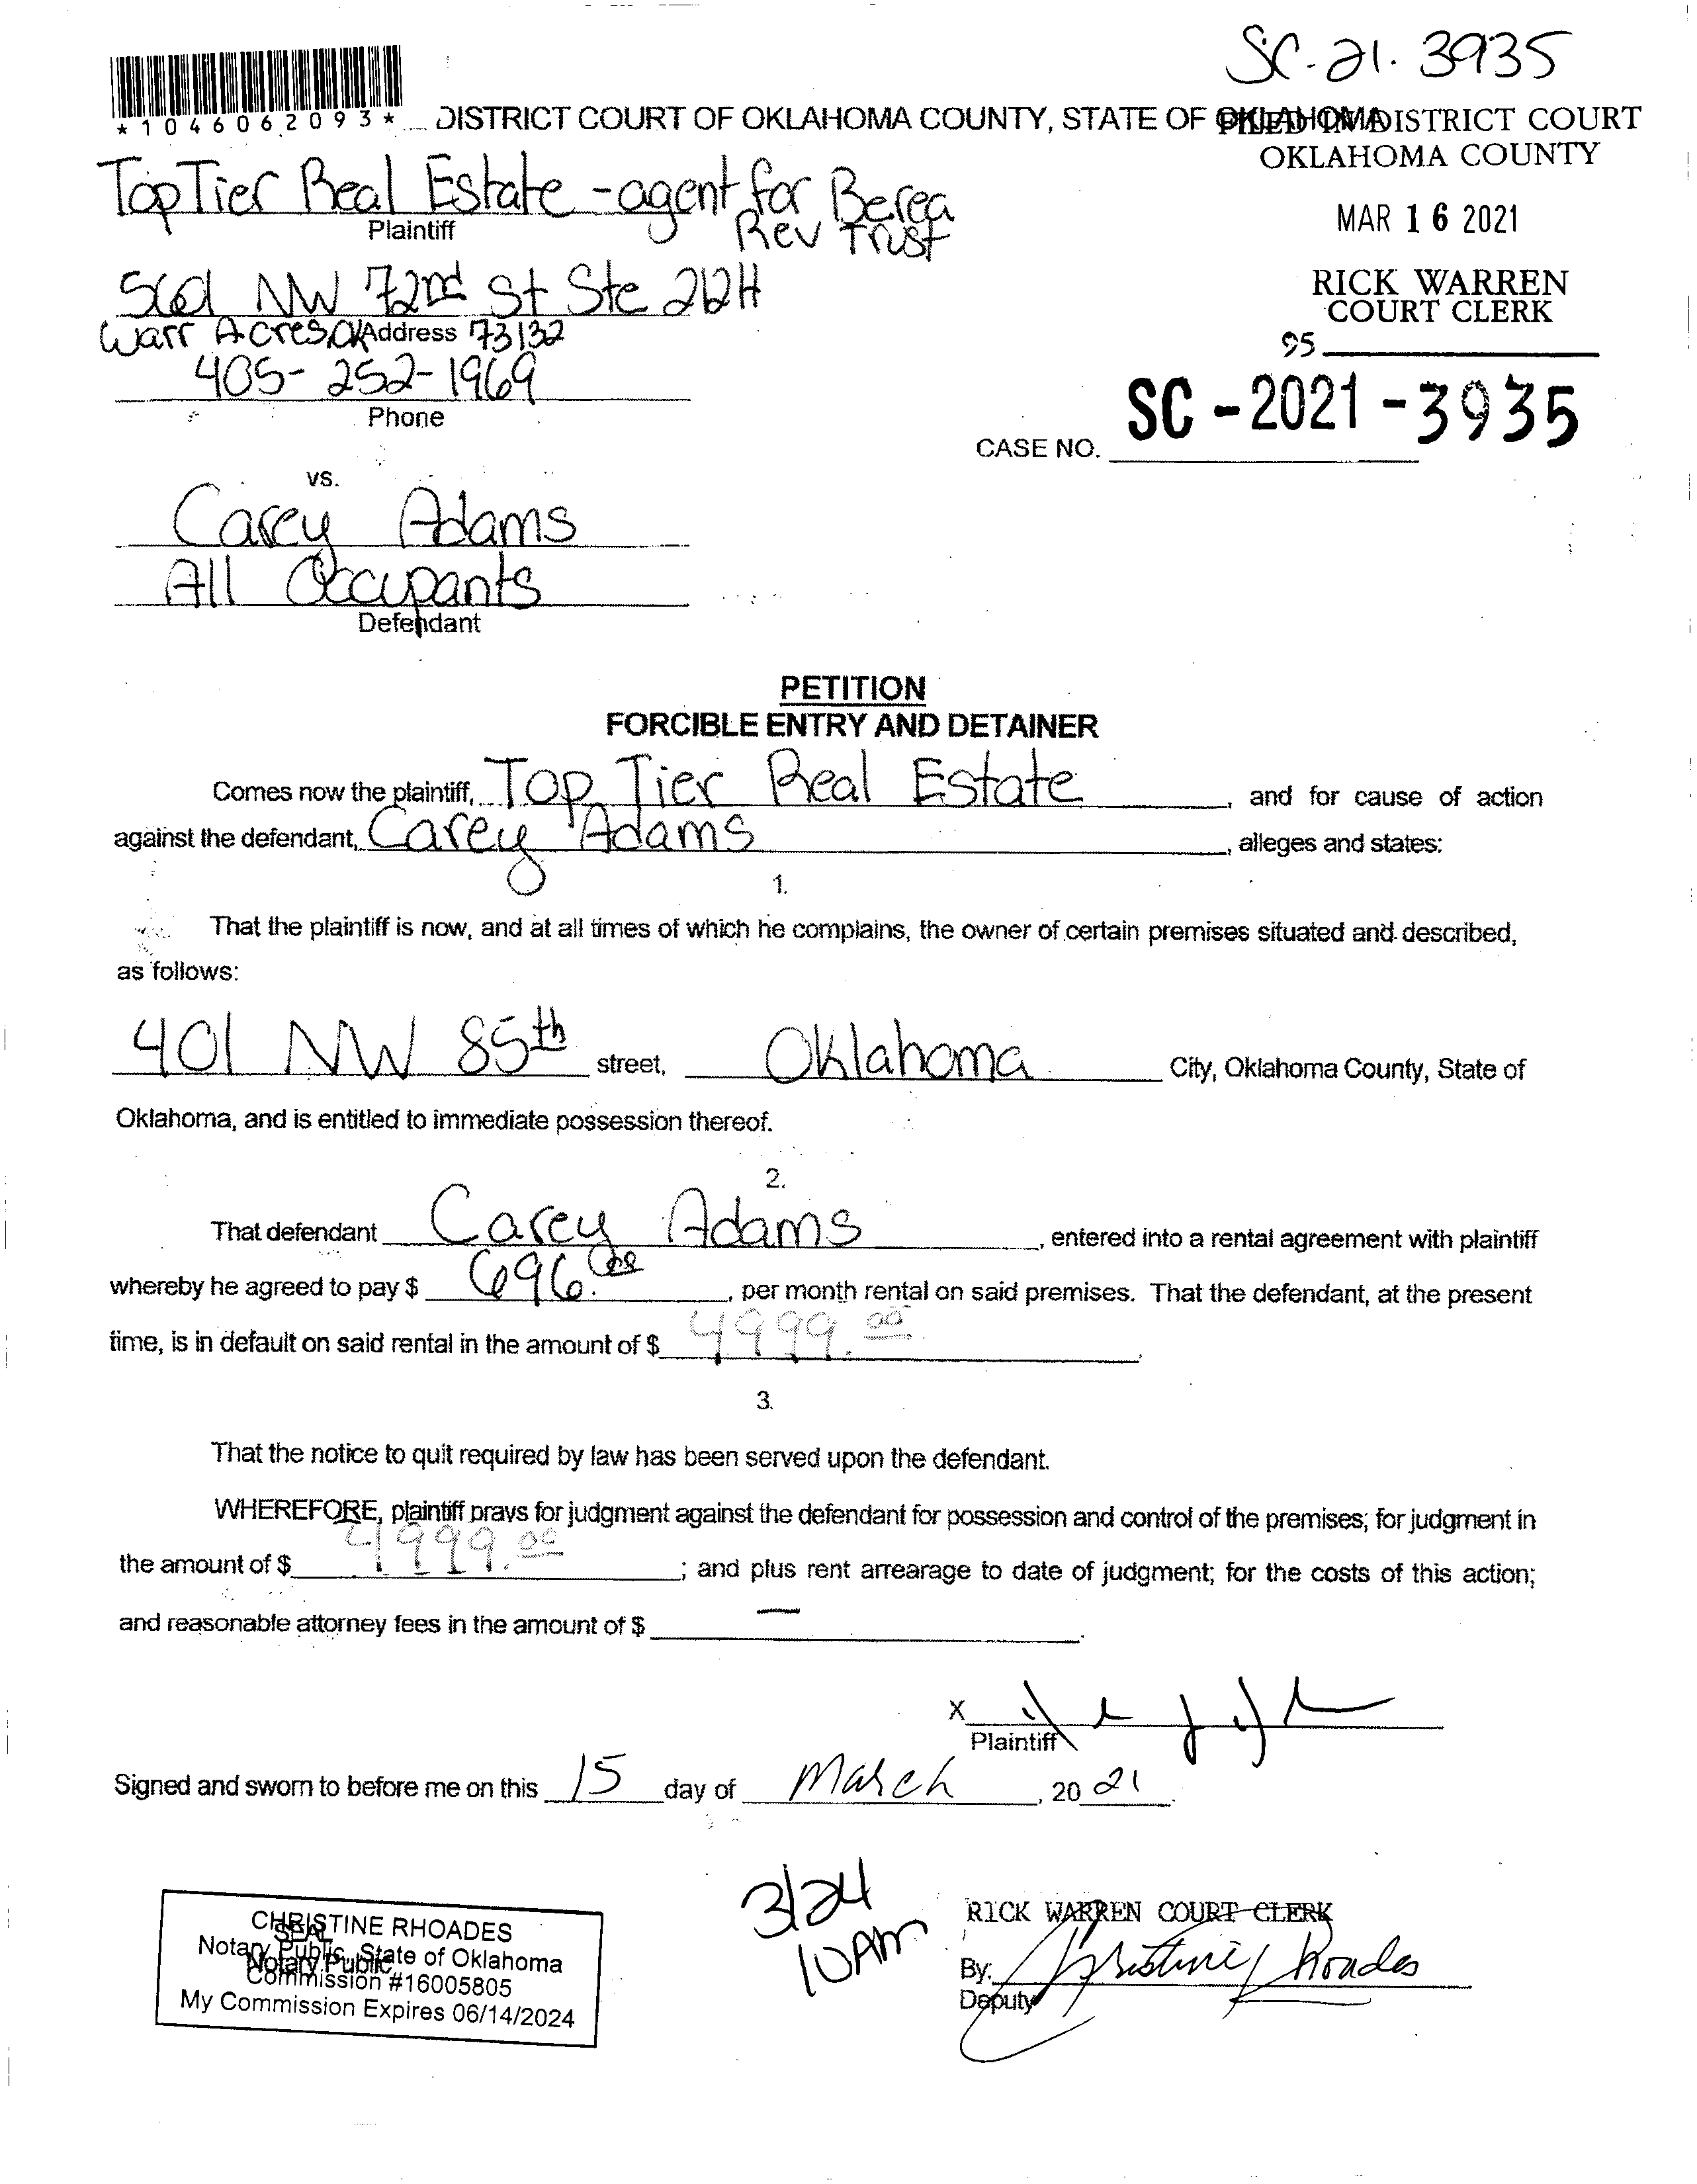 SC-21.3935
*1046062093*
DISTRICT COURT OF OKLAHOMA COUNTY, STATE OF OKLAHOMA
FILED IN DISTRICT COURT
OKLAHOMA COUNTY
MAR 16 2021
RICK WARREN
COURT CLERK
95
SC-2021-3935
CASE NO.
Top Tier Real Estate - agent for Berea
Rev Trust
Plaintiff
NW 72nd St Ste 212H
Warr Acres, OK Address 73132
405-252-1969
Phone
vs.
Carey Adams
All Occupants
Defendant
PETITION
FORCIBLE ENTRY AND DETAINER
Comes now the plaintiff, Top Tier Real Estate, and for cause of action
against the defendant, Carey Adams, alleges and states:
1.
That the plaintiff is now, and at all times of which he complains, the owner of certain premises situated and described,
as follows:
401 NW 85th street, Oklahoma City, Oklahoma County, State of
Oklahoma, and is entitled to immediate possession thereof.
2.
That defendant Carey Adams, entered into a rental agreement with plaintiff
whereby he agreed to pay $ 696.00, per month rental on said premises. That the defendant, at the present
time, is in default on said rental in the amount of $ 4999.00.
3.
That the notice to quit required by law has been served upon the defendant.
WHEREFORE, plaintiff prays for judgment against the defendant for possession and control of the premises; for judgment in
the amount of $ 4999.00; and plus rent arrearage to date of judgment; for the costs of this action;
and reasonable attorney fees in the amount of $ —.
X
Plaintiff
Signed and sworn to before me on this 15 day of March, 2021.
3/24
10AM
CHRISTINE RHOADES
SEAL
Notary Public, State of Oklahoma
Notary Public
Commission #16005805
My Commission Expires 06/14/2024
RICK WARREN COURT CLERK
By: Christine Rhoades
Deputy